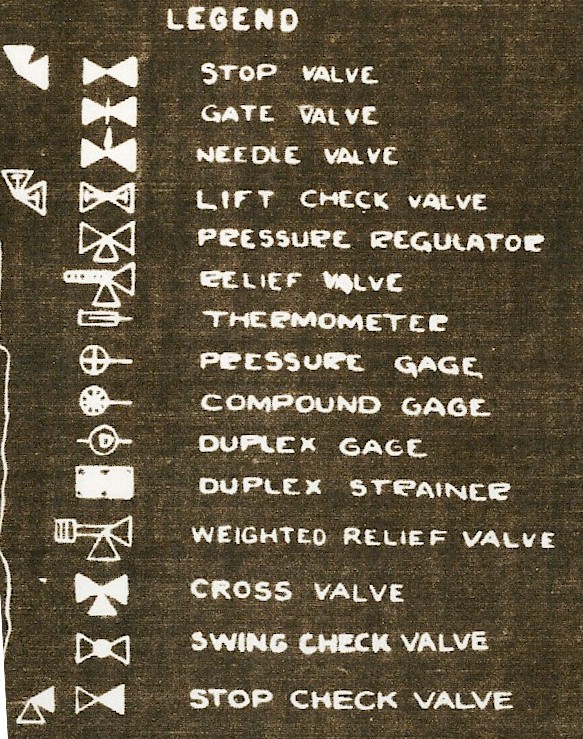 LEGEND
STOP VALVE
GATE VALVE
NEEDLE VALVE
LIFT CHECK VALVE
PRESSURE REGULATOR
RELIEF VALVE
THERMOMETER
PRESSURE GAGE
COMPOUND GAGE
D DUPLEX GAGE
DUPLEX STRAINER
WEIGHTED RELIEF VALVE
CROSS VALVE
SWING CHECK VALVE
STOP CHECK VALVE